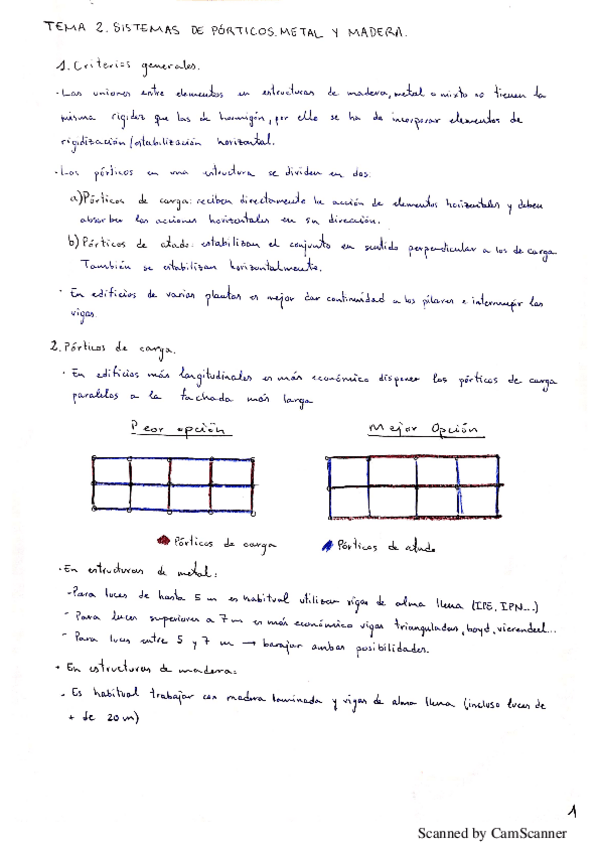 TEMA 2. SISTEMAS DE PÓRTICOS. METAL Y MADERA.
1. Criterios generales.
· Las uniones entre elementos en estructuras de madera, metal o mixto no tienen la
misma rigidez que las de hormigón, por ello se ha de incorporar elementos de
rigidización/estabilización horizontal.
· Los pórticos en una estructura se dividen en dos:
a) Pórticos de carga: reciben directamente la acción de elementos horizontales y deben
absorber las acciones horizontales en su dirección.
b) Pórticos de atado: estabilizan el conjunto en sentido perpendicular a los de carga.
También se estabilizan horizontalmente.
· En edificios de varias plantas es mejor dar continuidad a los pilares e interrumpir las
vigas.
2. Pórticos de carga.
· En edificios más longitudinales es más económico disponer los pórticos de carga
paralelos a la fachada más larga
Peor opción
Mejor Opción
Pórticos de carga
Pórticos de atado
· En estructuras de metal:
- Para luces de hasta 5 m es habitual utilizar vigas de alma llena (IPE, IPN...)
- Para luces superiores a 7 m es más económico vigas trianguladas, boyd, vierendeel...
- Para luces entre 5 y 7 m → barajar ambas posibilidades.
· En estructuras de madera:
- Es habitual trabajar con madera laminada y vigas de alma llena (incluso luces de
+ de 20 m)
1
Scanned by CamScanner